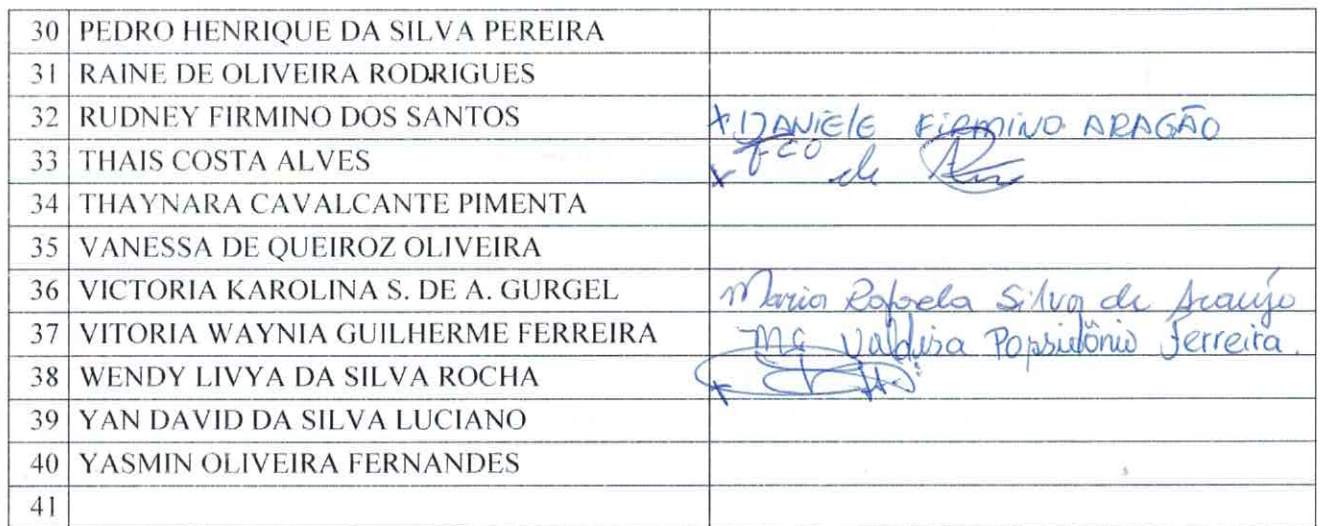 30 PEDRO HENRIQUE DA SILVA PEREIRA
31 RAINE DE OLIVEIRA RODRIGUES
32 RUDNEY FIRMINO DOS SANTOS x DANIELE FIRMINO ARAGÃO
33 THAIS COSTA ALVES x FCO de
34 THAYNARA CAVALCANTE PIMENTA
35 VANESSA DE QUEIROZ OLIVEIRA
36 VICTORIA KAROLINA S. DE A. GURGEL Maria Rafaela Silva de Araujo
37 VITORIA WAYNIA GUILHERME FERREIRA Ferreira.
38 WENDY LIVYA DA SILVA ROCHA x
39 YAN DAVID DA SILVA LUCIANO
40 YASMIN OLIVEIRA FERNANDES
41